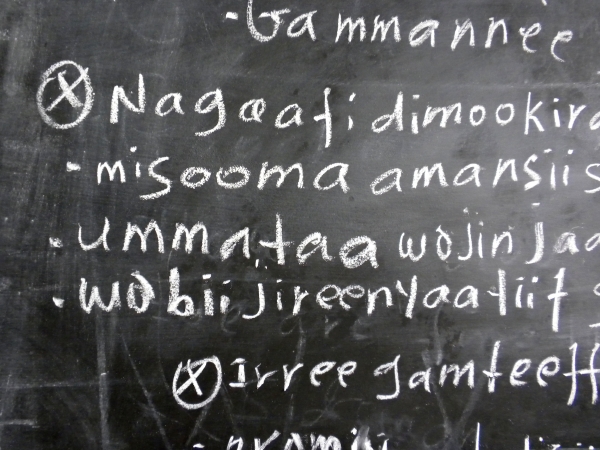 - Gammannee
ⓧ Nagaafi dimookira
- misooma amansiis
. ummataa wojin jaa
. wobii jireenyaatiif
ⓧ irree gamteeff